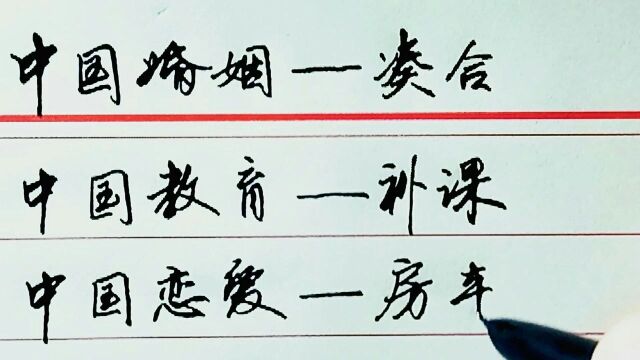 中国婚姻—凑合
中国教育—补课
中国恋爱—房车